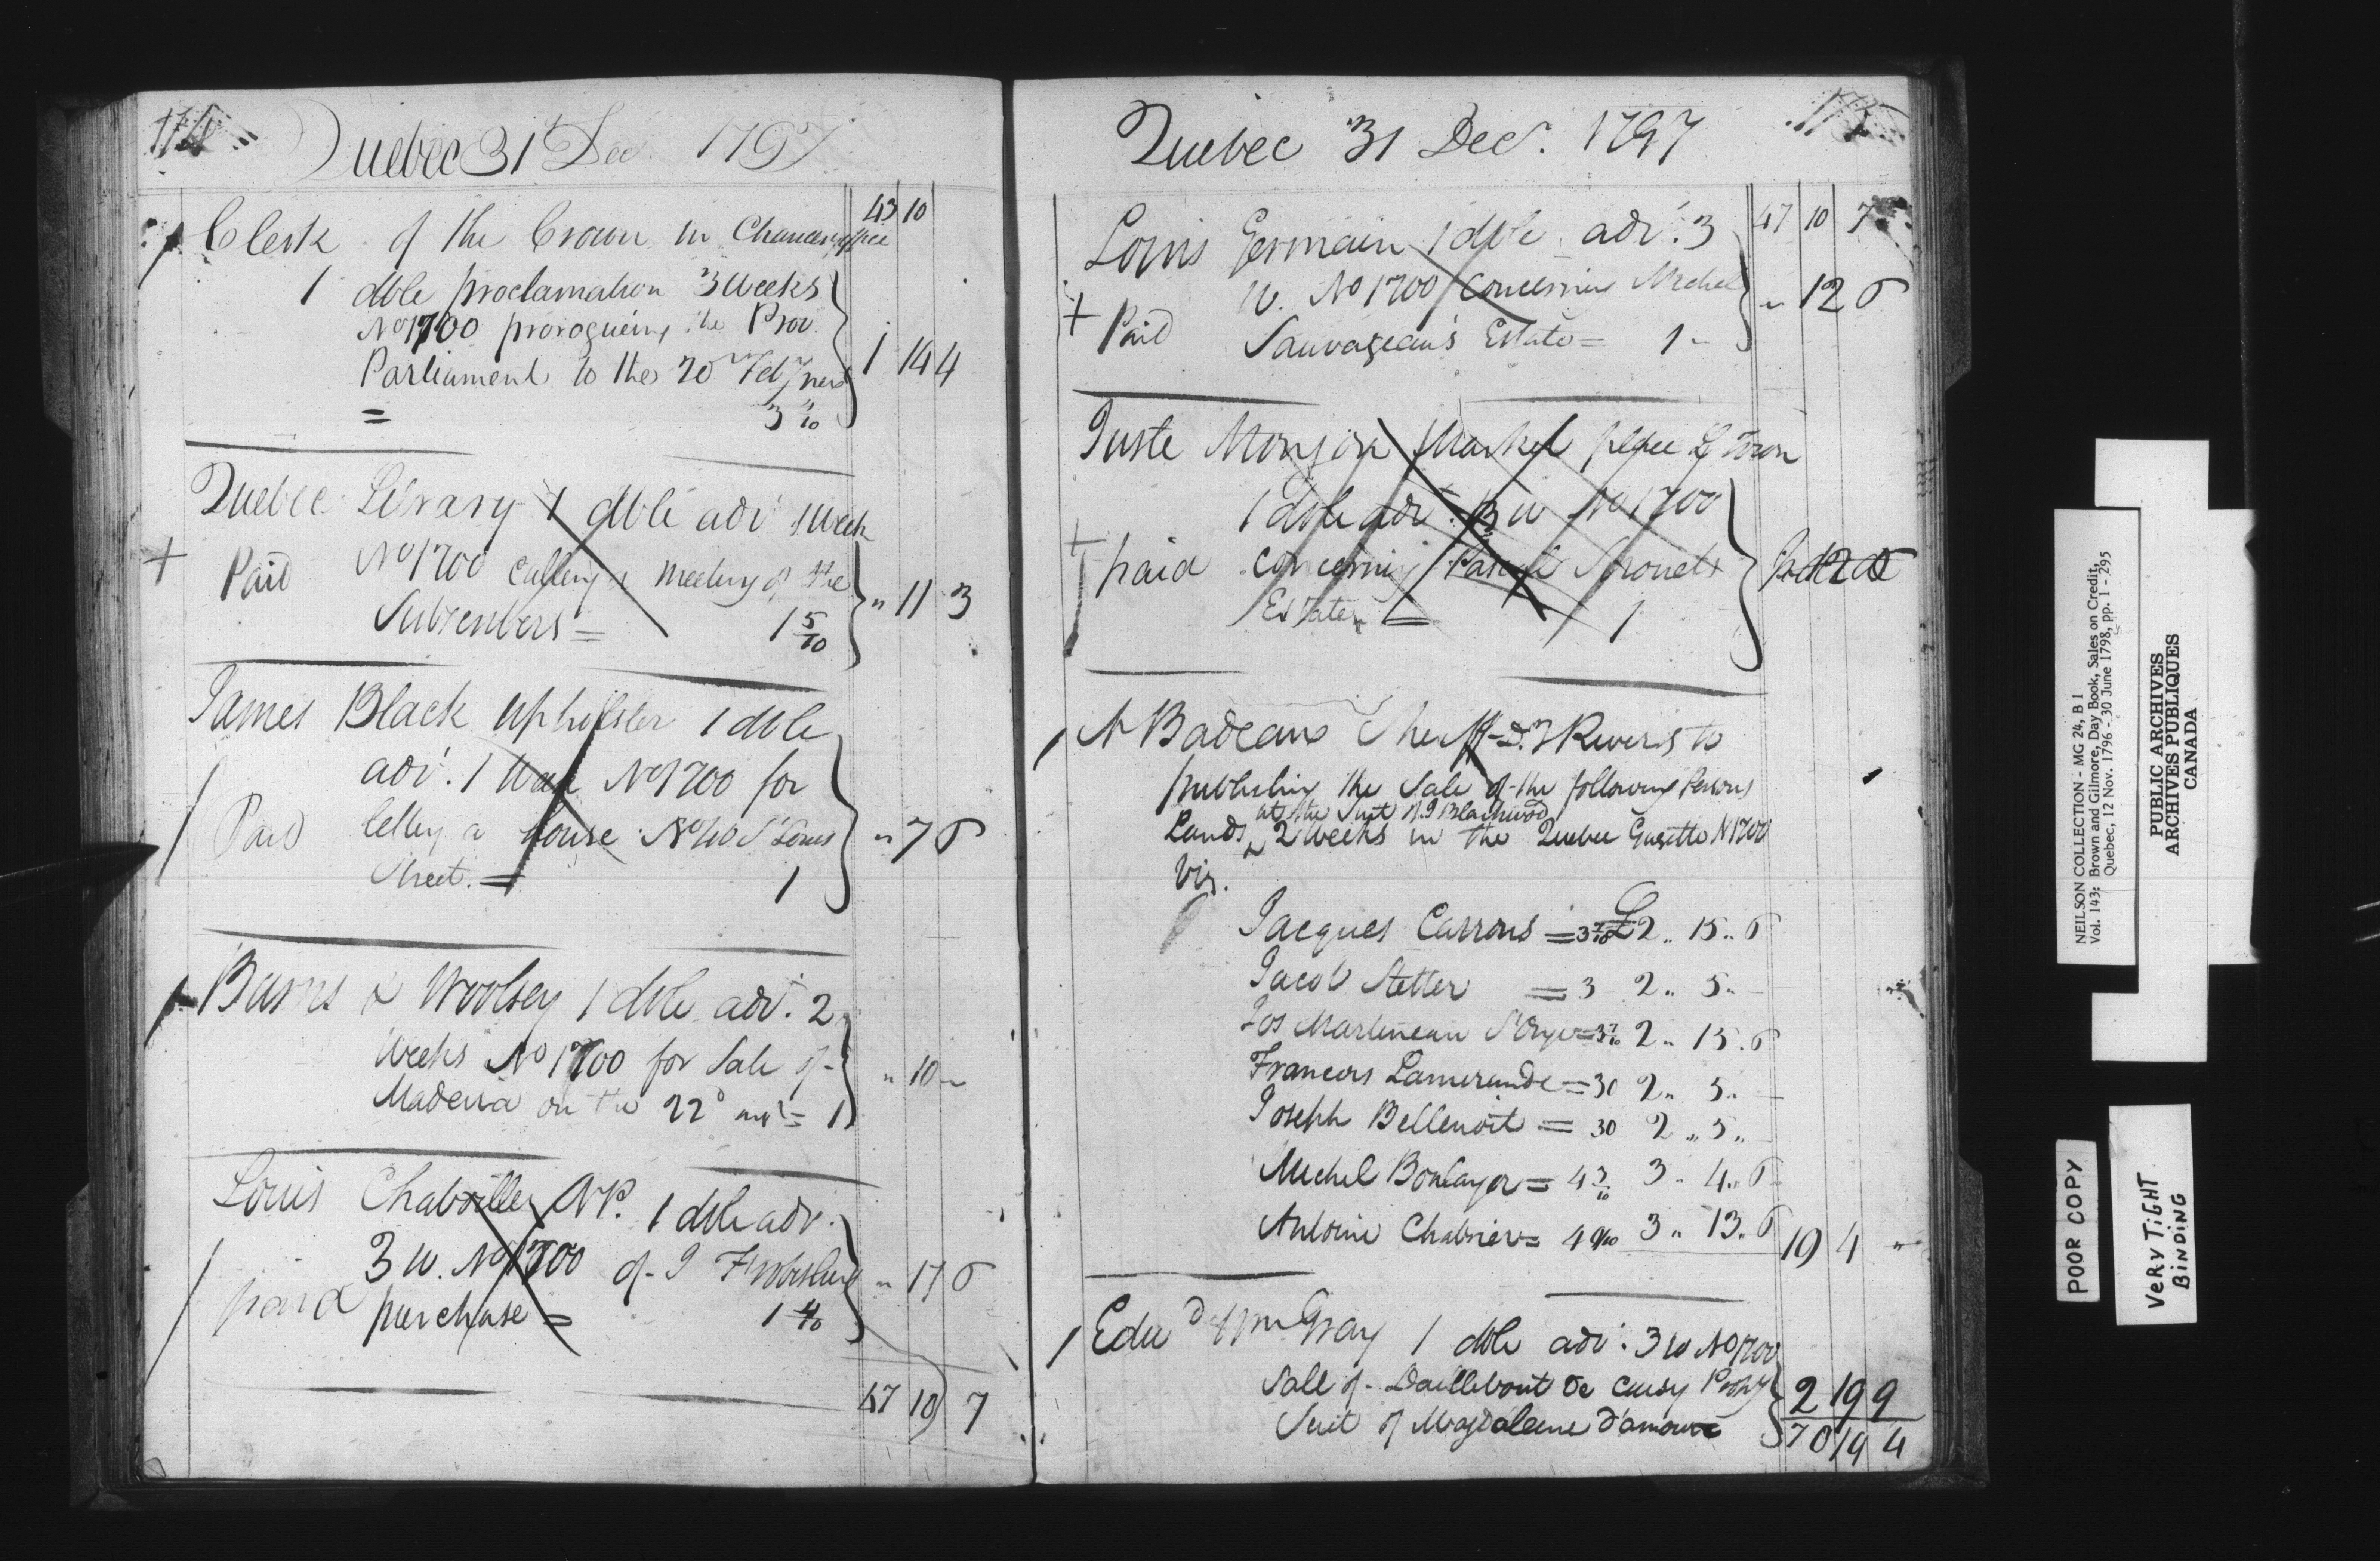 114
Quebec 31 Dec. 1797
43 10
Clerk of the Crown in Chancery office
1 dble proclamation 3 Weeks
No 1700 proroguing the Prov.
Parliament to the 20 Feby next 1 14 4
= 3 2/10
Quebec Library 1 dble adv 1 Week
+ Paid No 1700 calling a Meeting of the
Subscribers = 1 5/10 " 11 3
James Black Upholster 1 dble
adv. 1 Week No 1700 for
Paid letting a house No 40 St Louis " 7 6
Street. = 1
Burns & Woolsey 1 dble adv. 2
Weeks No 1700 for Sale of
Madeira on the 22d = 1 " 10 "
Louis Chaboillez NP. 1 dble adv.
3 W. No 1700 of J Frobisher " 17 6
paid purchase = 1 4/10
47 10 7
Quebec 31 Dec. 1797
115
47 10 7
Louis Germain 1 dble adv. 3
W. No 1700 Concerning Michel " 12 6
+ Paid Sauvageau's Estate = 1 "
Juste Monjon Market place L Town
1 dble adv. 3 W No 1700
+ paid concerning Estate = 1
A Badeaux Sheriff D. 3 Rivers to
publishing the Sale of the following Persons
at the Suit of J Blackwood
Lands ^ 2 Weeks in the Quebec Gazette N 1700
Viz.
Jacques Carrons = 3 7/10 £2 " 15 " 6
Jacob Stetter = 3 2 " 5 "
Jos Martineau St Onge = 3 7/10 2 " 15 " 6
Francois Lamerande = 30 2 " 5 "
Joseph Bellenoit = 30 2 " 5 "
Michel Boulayer = 4 3/10 3 " 4 " 6
Antoine Chabrier = 4 9/10 3 " 13 " 6 19 4 "
Edwd Wm Gray 1 dble adv. 3 W No 1700
Sale of Daillebout de Cuisy Propy 2 19 9
Suit of Magdaleine D'amour 70 19 4
NEILSON COLLECTION - MG 24, B 1
Vol. 143: Brown and Gilmore, Day Book, Sales on Credit,
Quebec, 12 Nov. 1796 - 30 June 1798, pp. 1 - 295
PUBLIC ARCHIVES
ARCHIVES PUBLIQUES
CANADA
POOR COPY
VERY TIGHT
BINDING